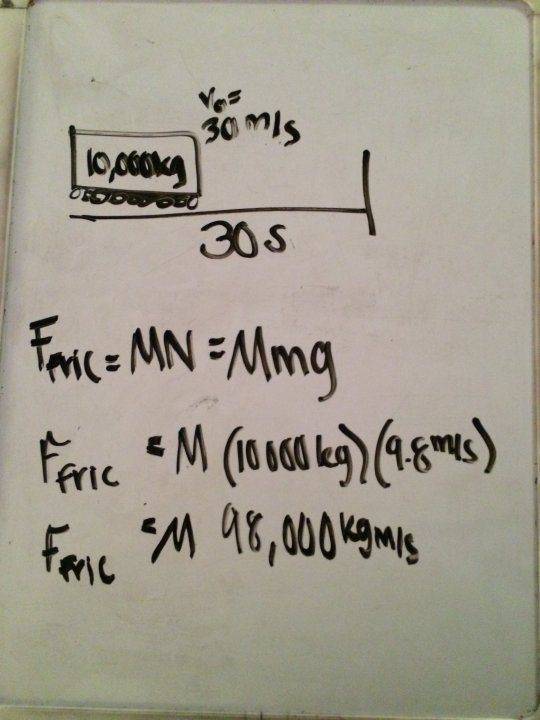 V₀=
30 m/s
10,000kg
30 s
Ffric = MN = Mmg
Ffric = M (10000 kg)(9.8m/s)
Ffric = M 98,000 kgm/s